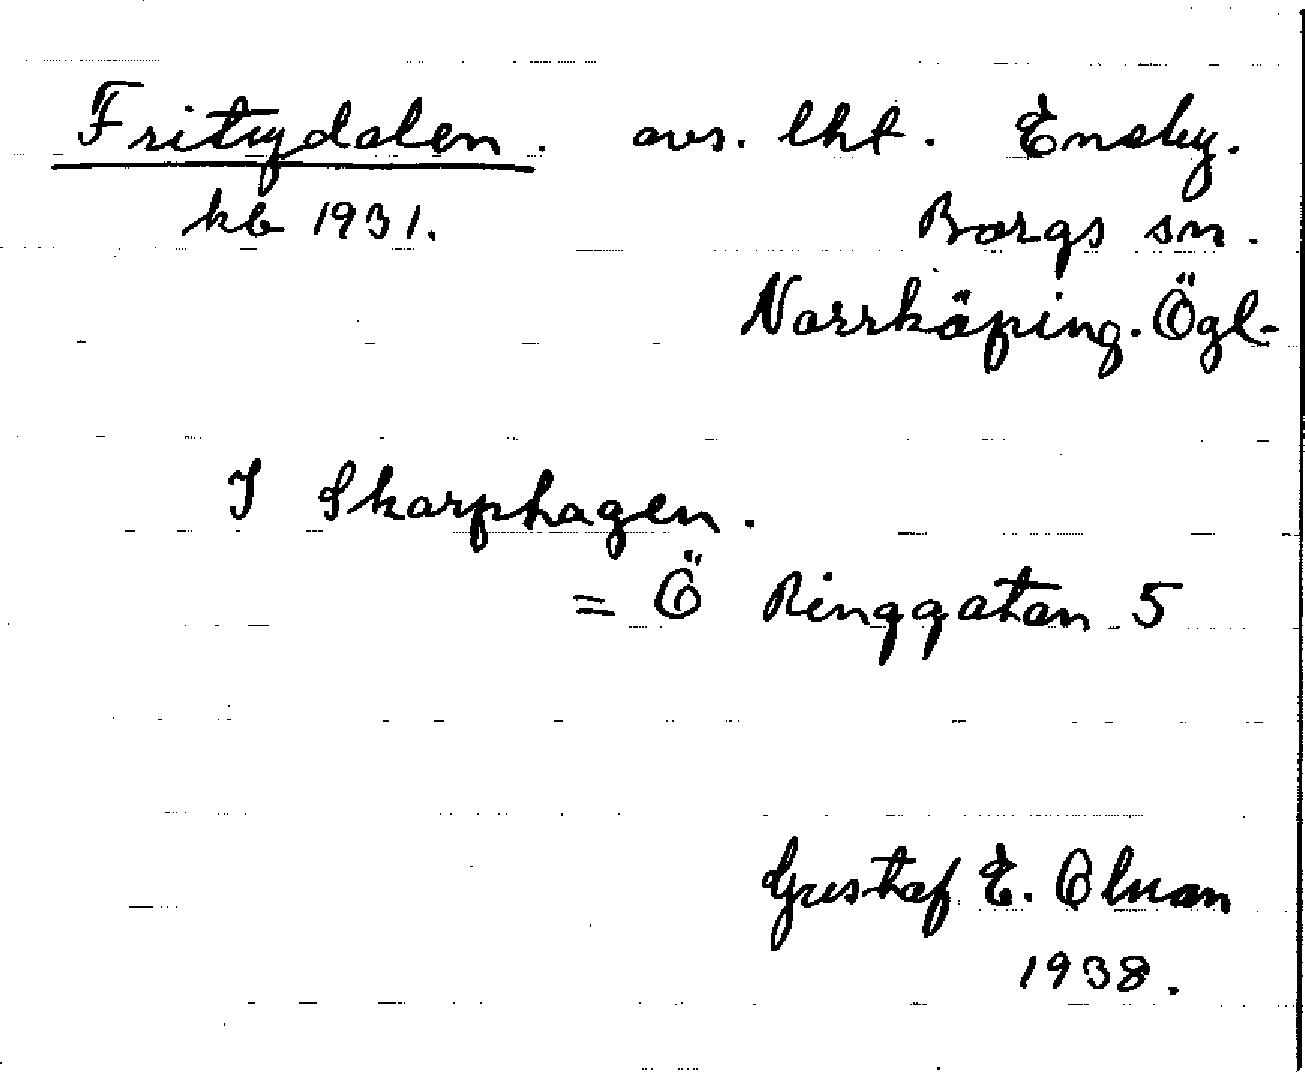 Fritydalen. avs. lht. Ensby.
kb 1931. Borgs sn.
Norrköping. Ögl.
I Skarphagen.
= Ö Ringgatan 5
Gustaf E. Olson
1938.